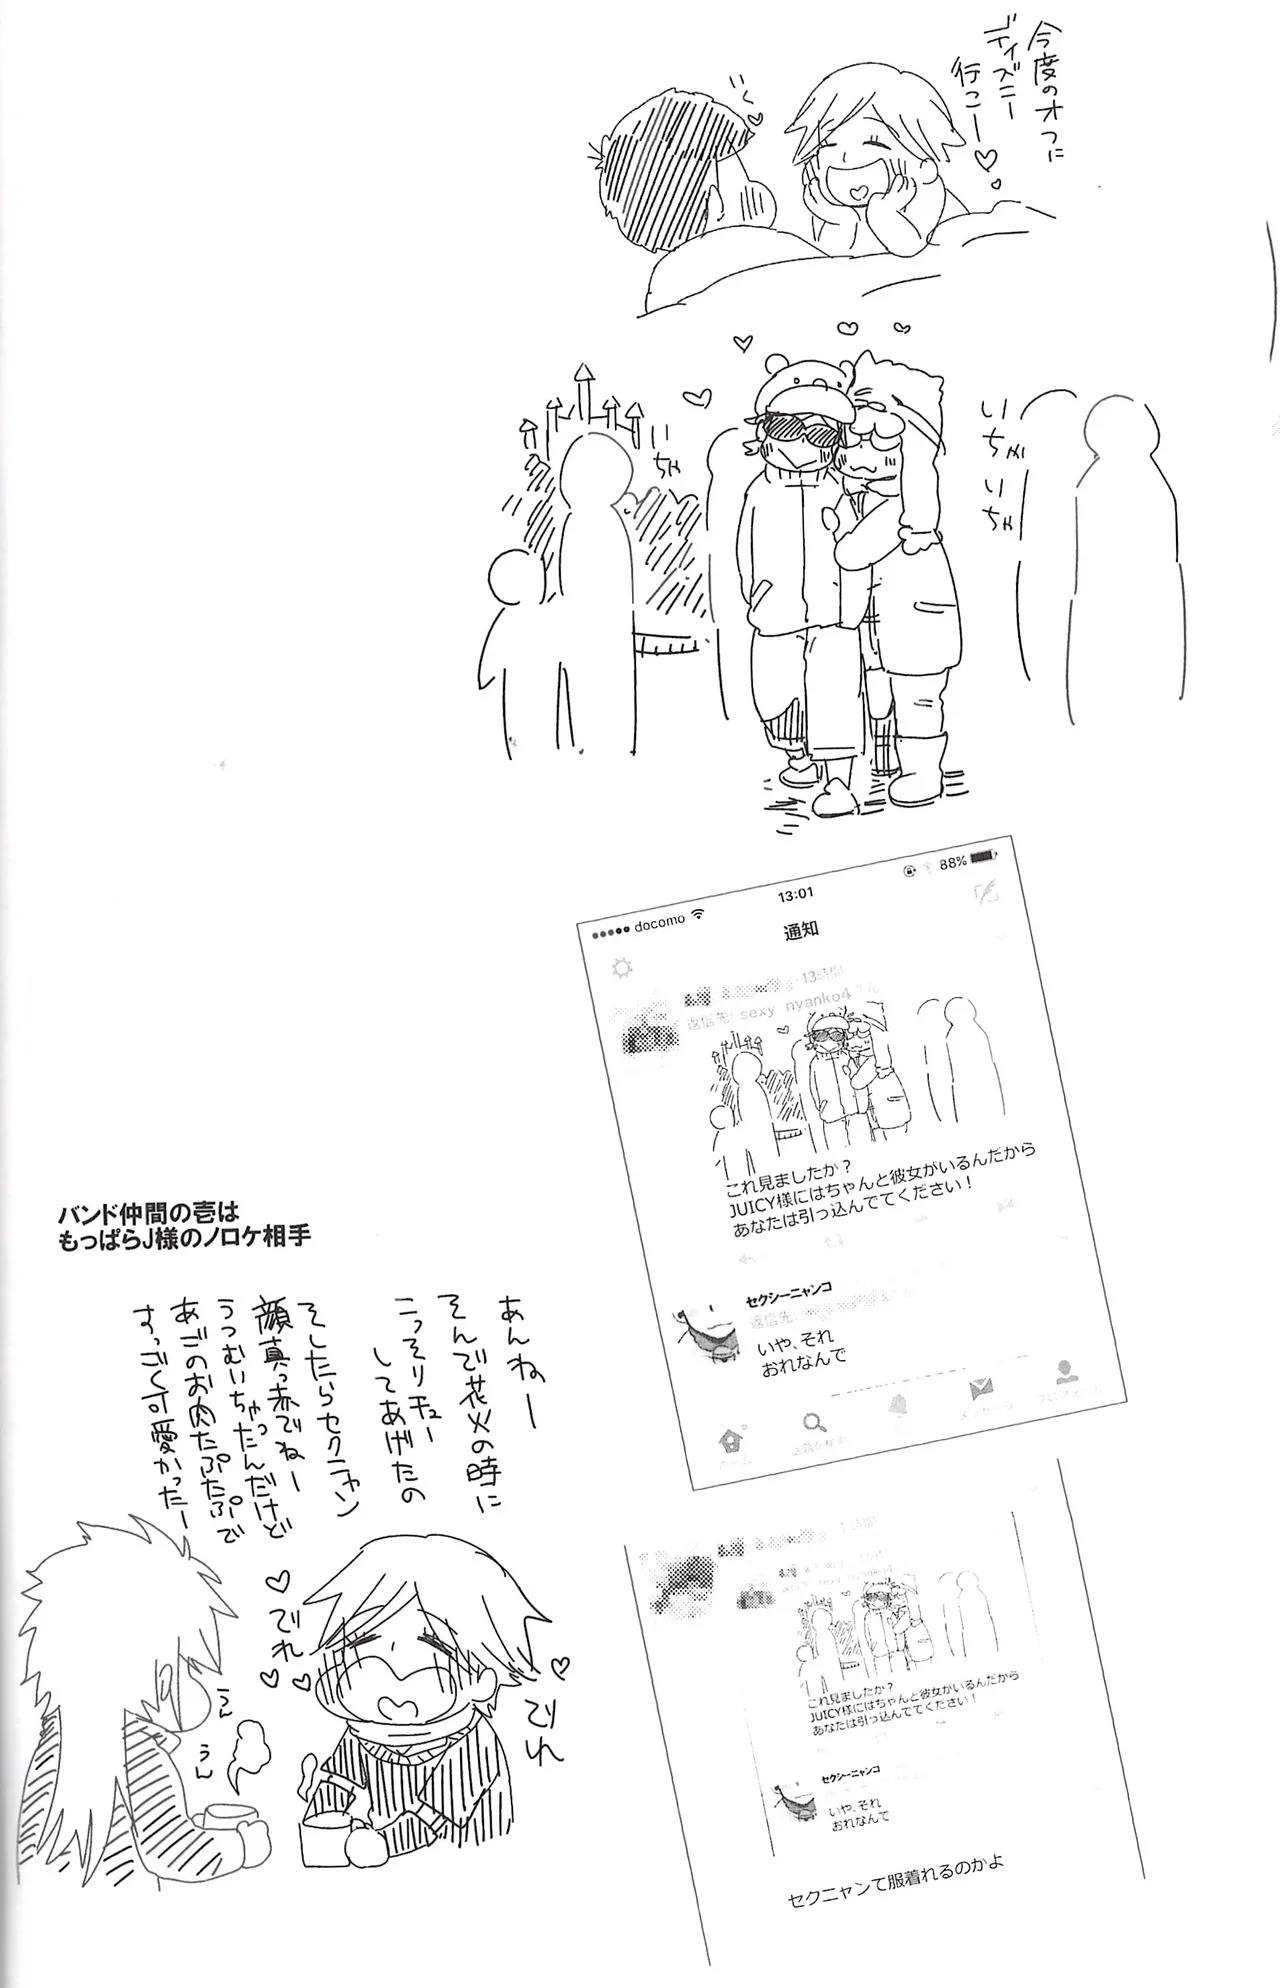 今度のオフに
ディズニー
行こー♡
いく♡
いちゃ
いちゃ
いちゃ
docomo
13:01
88%
通知
13時間
返信先: sexy_nyanko4さん
これ見ましたか？
JUICY様にはちゃんと彼女がいるんだから
あなたは引っ込んでてください！
セクシーニャンコ
返信先:
いや、それ
おれなんで
ホーム
メッセージ
プロフィール
バンド仲間の壱は
もっぱらJ様のノロケ相手
あんねー
そんで花火の時に
こっそりチュー
してあげたの
そしたらセクニャン
顔真っ赤でねー
うつむいちゃったんだけど
あごのお肉たぷたぷで
すっごく可愛かったー
でれ
でれ
うん
うん
これ見ましたか？
JUICY様にはちゃんと彼女がいるんだから
あなたは引っ込んでてください！
セクシーニャンコ
いや、それ
おれなんで
セクニャンて服着れるのかよ